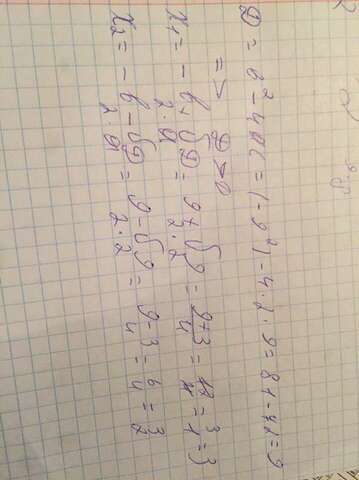 D = b² - 4ac = (-9²) - 4·2·9 = 81 - 72 = 9
=> D > 0
x₁ = - b + √D / 2·a = 9 + √9 / 2·2 = 9+3 / 4 = 12 / 4 = 3 / 1 = 3
x₂ = - b - √D / 2 a = 9 - √9 / 2·2 = 9-3 / 4 = 6 / 4 = 3 / 2